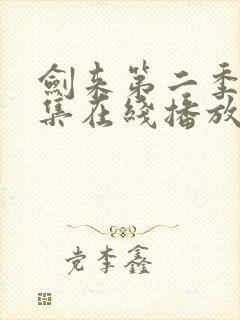 劍来第二季
集在綫播放
党李鑫